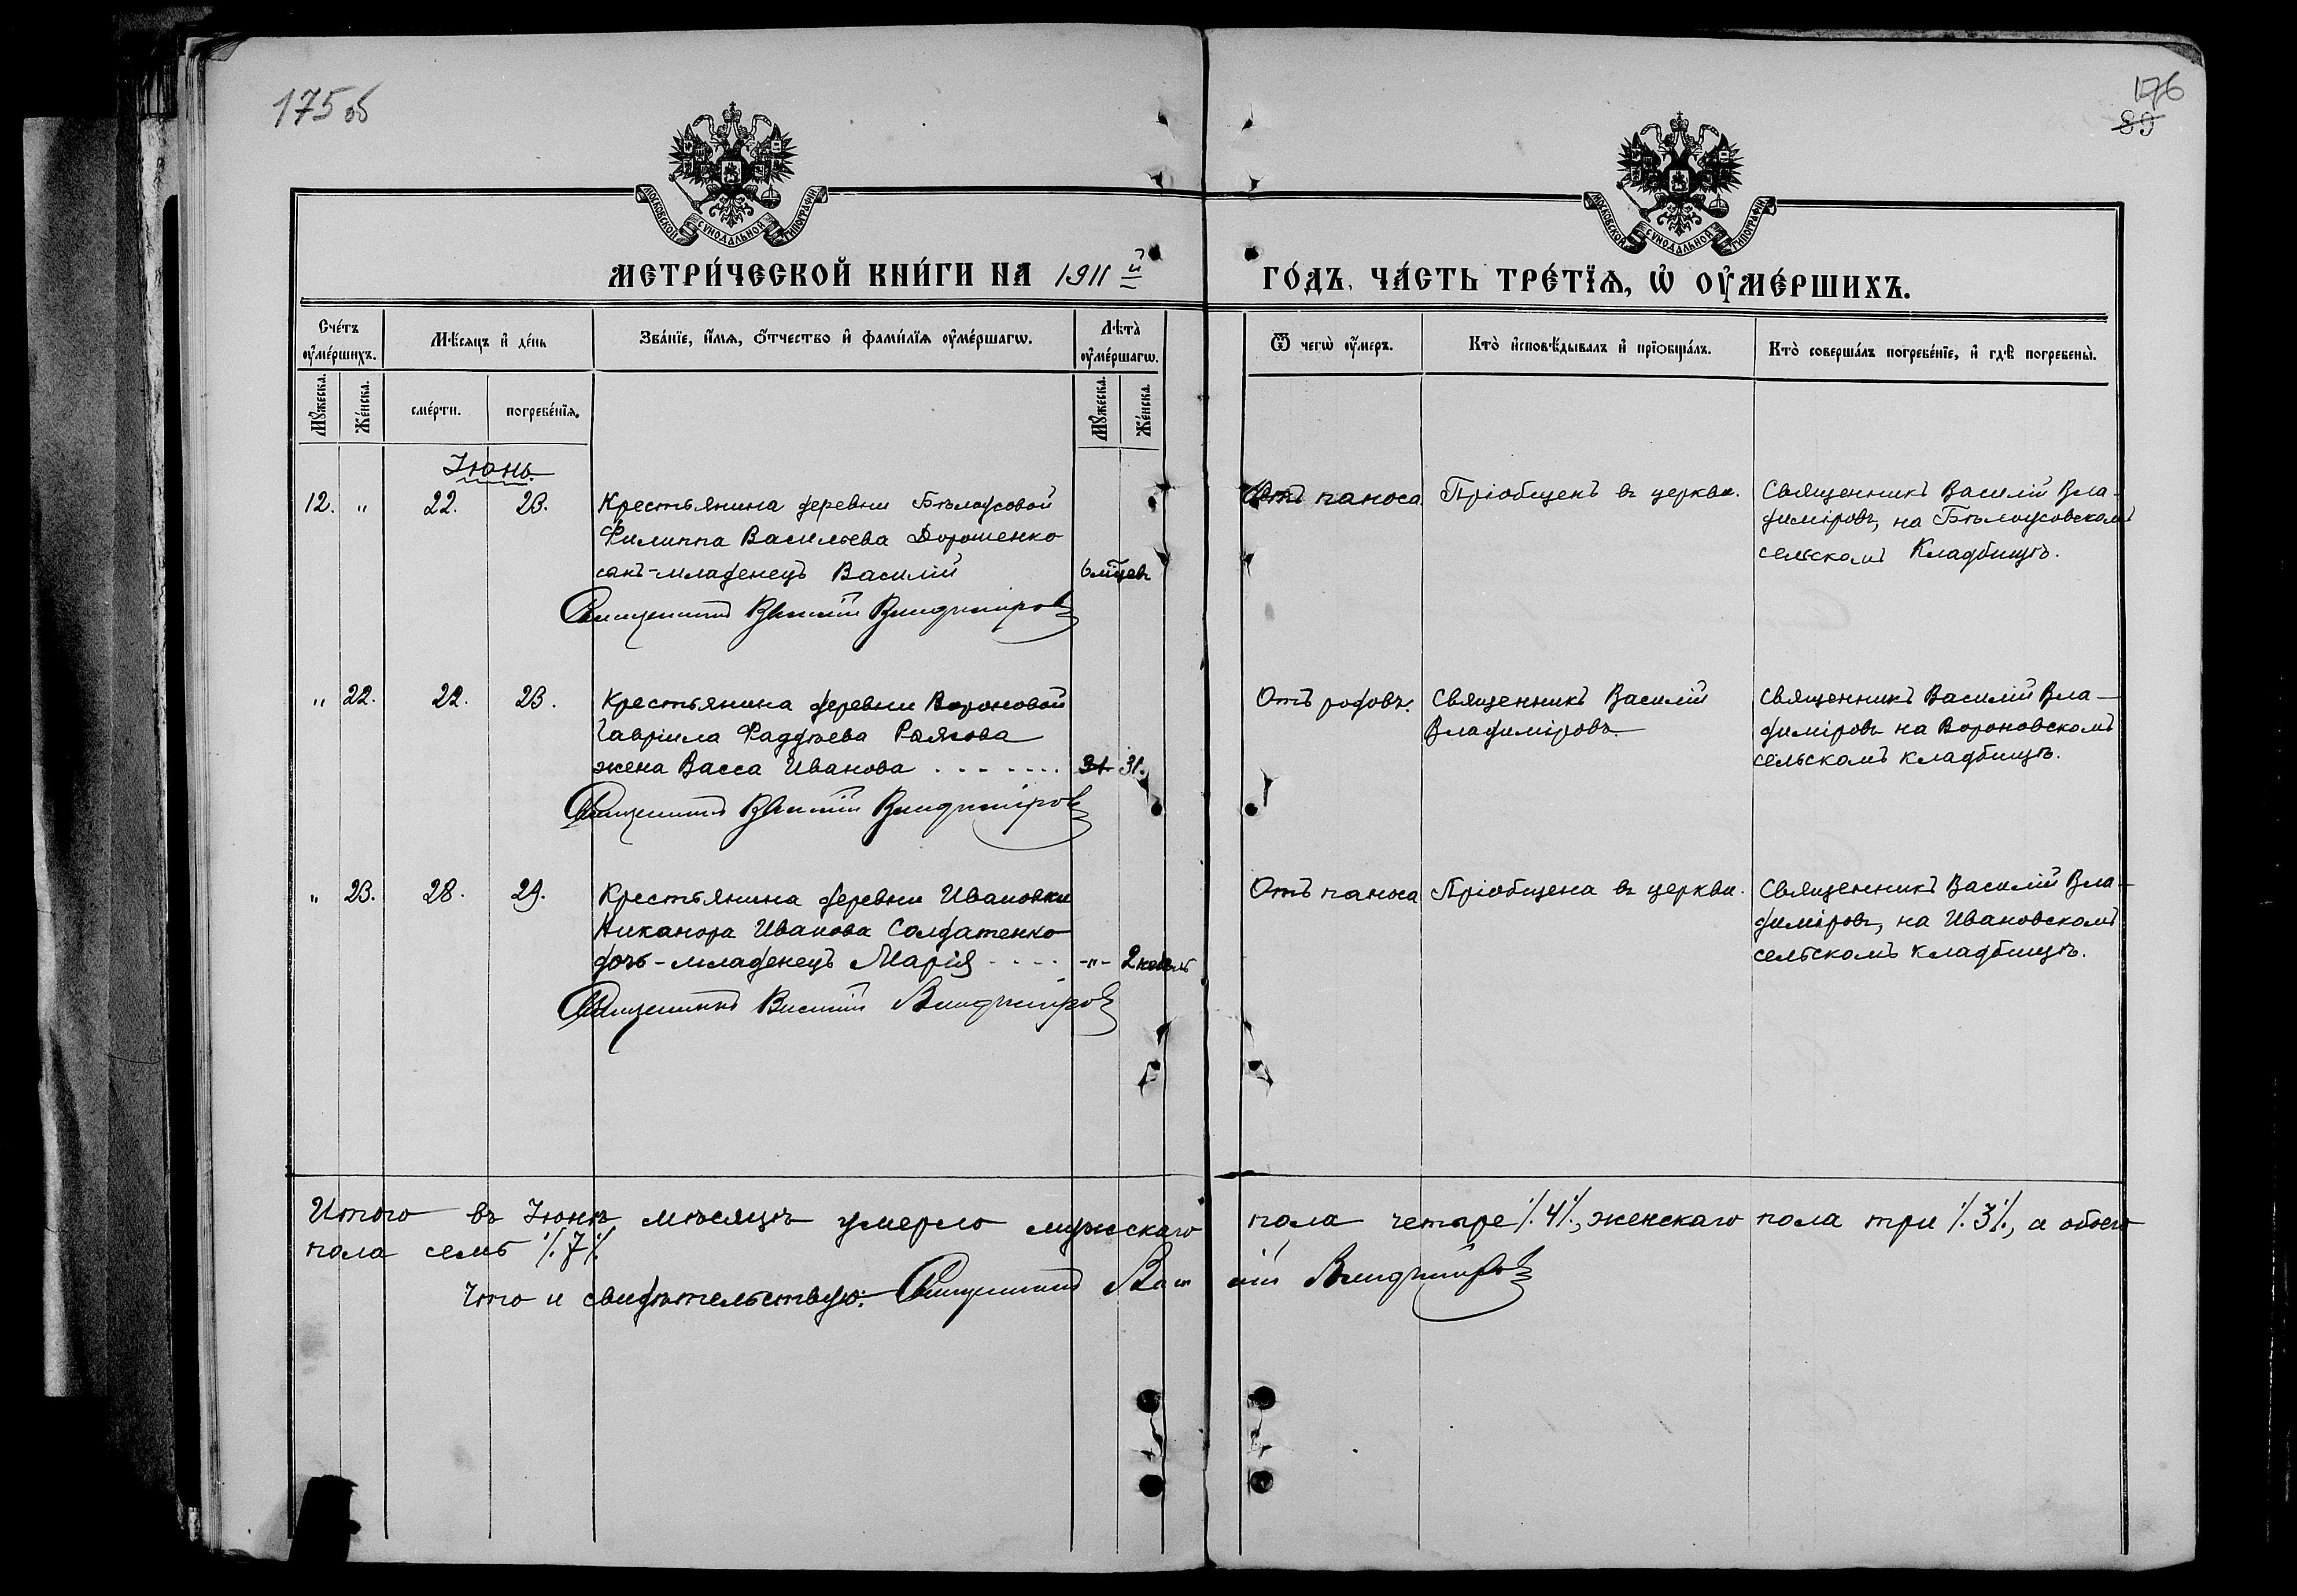 175 об
176
89
МОСКОВСКОЙ СѴНОДАЛЬНОЙ ТИПОГРАФІИ
МОСКОВСКОЙ СѴНОДАЛЬНОЙ ТИПОГРАФІИ
МЕТРИ́ЧЕСКОЙ КНИ́ГИ НА 1911 й
ГО́ДЪ, ЧА́СТЬ ТРЕ́ТЇѦ, Ѡ҆ ОУ҆МЕ́РШИХЪ.
Сче́тъ оу҆ме́ршихъ.
Мѣ́сяцъ и҆ де́нь
Зва́нїе, и҆́мѧ, ѻ҆́тчество и҆ фами́лїѧ оу҆ме́ршагѡ.
Лѣ́та оу҆ме́ршагѡ.
Ѿ чегѡ̀ оу҆́меръ.
Кто̀ и҆сповѣ́дывалъ и҆ прїѻбща́лъ.
Кто̀ соверша́лъ погребе́нїе, и҆ гдѣ̀ погребены̀.
Мꙋ́жеска.
Же́нска.
сме́рти.
погребе́нїѧ.
Мꙋ́жеска.
Же́нска.
Іюнь
12. " 22. 23. Крестьянина деревни Бѣлоусовой
Филиппа Васильева Дорошенко
сынъ-младенецъ Василій 6 мѣсцев
Священникъ Василій Владиміровъ
Отъ паноса. Пріобщенъ въ церкви. Священникъ Василій Вла-
диміровъ, на Бѣлоусовскомъ
сельскомъ Кладбищѣ.
" 22. 22. 23. Крестьянина деревни Вороновой
Гавріила Фаддѣева
жена Васса Иванова . . . . . . . 31 31.
Священникъ Василій Владиміровъ
Отъ родовъ. Священникъ Василій
Владиміровъ.
Священникъ Василій Вла-
диміровъ на Вороновскомъ
сельскомъ кладбищѣ.
" 23. 28. 29. Крестьянина деревни Ивановки
Никанора Иванова Солдатенко
дочь-младенецъ Марія . . . . -"- 2 недѣль
Священникъ Василій Владиміровъ
Отъ паноса Пріобщена въ церкви. Священникъ Василій Вла-
диміровъ, на Ивановскомъ
сельскомъ кладбищѣ.
Итого въ Іюнѣ мѣсяцѣ умерло мужскаго пола четыре ./.4./., женскаго пола три ./.3./., а обоего
пола семь ./.7./.
Что и свидѣтельствую: Священникъ Василій Владиміровъ